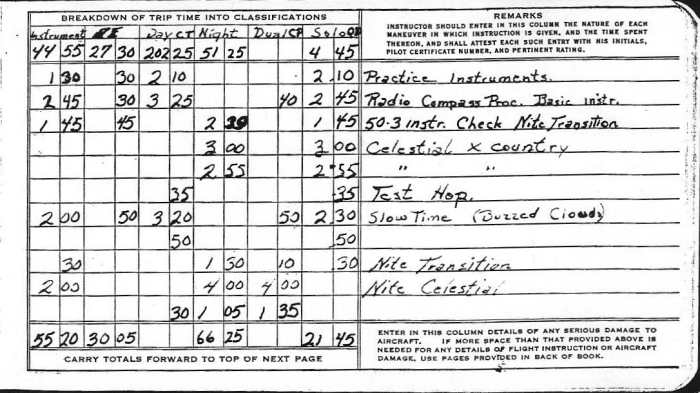 BREAKDOWN OF TRIP TIME INTO CLASSIFICATIONS
REMARKS
INSTRUCTOR SHOULD ENTER IN THIS COLUMN THE NATURE OF EACH
MANEUVER IN WHICH INSTRUCTION IS GIVEN, AND THE TIME SPENT
THEREON, AND SHALL ATTEST EACH SUCH ENTRY WITH HIS INITIALS,
PILOT CERTIFICATE NUMBER, AND PERTINENT RATING.
Instrument Day CT Night Dual CP Solo
44 55 27 30 202 25 51 25 4 45
1 30 30 2 10 2.10 Practice Instruments.
2 45 30 3 25 40 2 45 Radio Compass Proc. Basic instr.
1 45 45 2 30 1 45 50-3 instr. Check Nite Transition
3 00 3 00 Celestial X country
2 55 2.55 " "
35 .35 Test Hop.
2 00 50 3 20 50 2.30 Slow Time (Buzzed Clouds)
50 .50
30 1 30 10 .30 Nite Transition
2 00 4 00 4 00 Nite Celestial
30 1 05 1 35
55 20 30 05 66 25 21 45
ENTER IN THIS COLUMN DETAILS OF ANY SERIOUS DAMAGE TO
AIRCRAFT. IF MORE SPACE THAN THAT PROVIDED ABOVE IS
NEEDED FOR ANY DETAILS OF FLIGHT INSTRUCTION OR AIRCRAFT
DAMAGE, USE PAGES PROVIDED IN BACK OF BOOK.
CARRY TOTALS FORWARD TO TOP OF NEXT PAGE